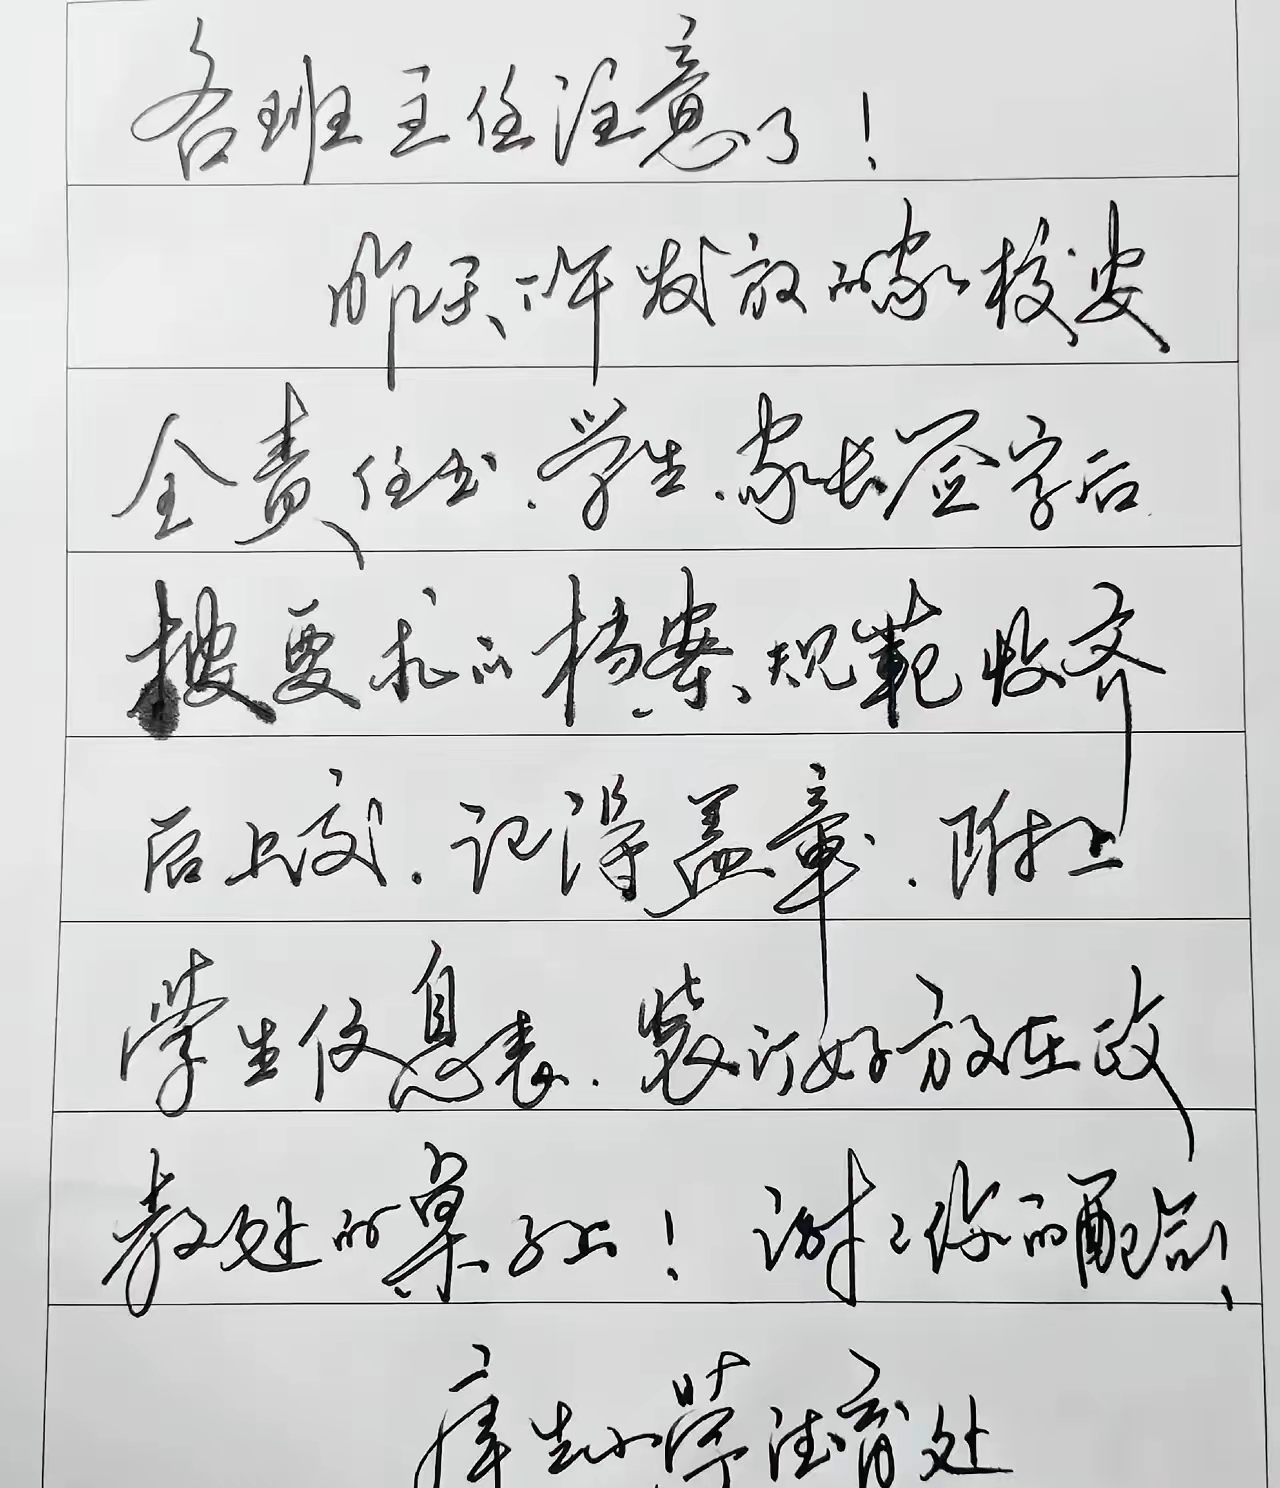 各班主任注意了！
昨天下午发放的家校安
全责任书，学生，家长签字后
按要求的档案规範收齐
后上交，记得盖章，附上
学生信息表，装订好放在政
教处的桌子上！谢谢你的配合！
小学德育处